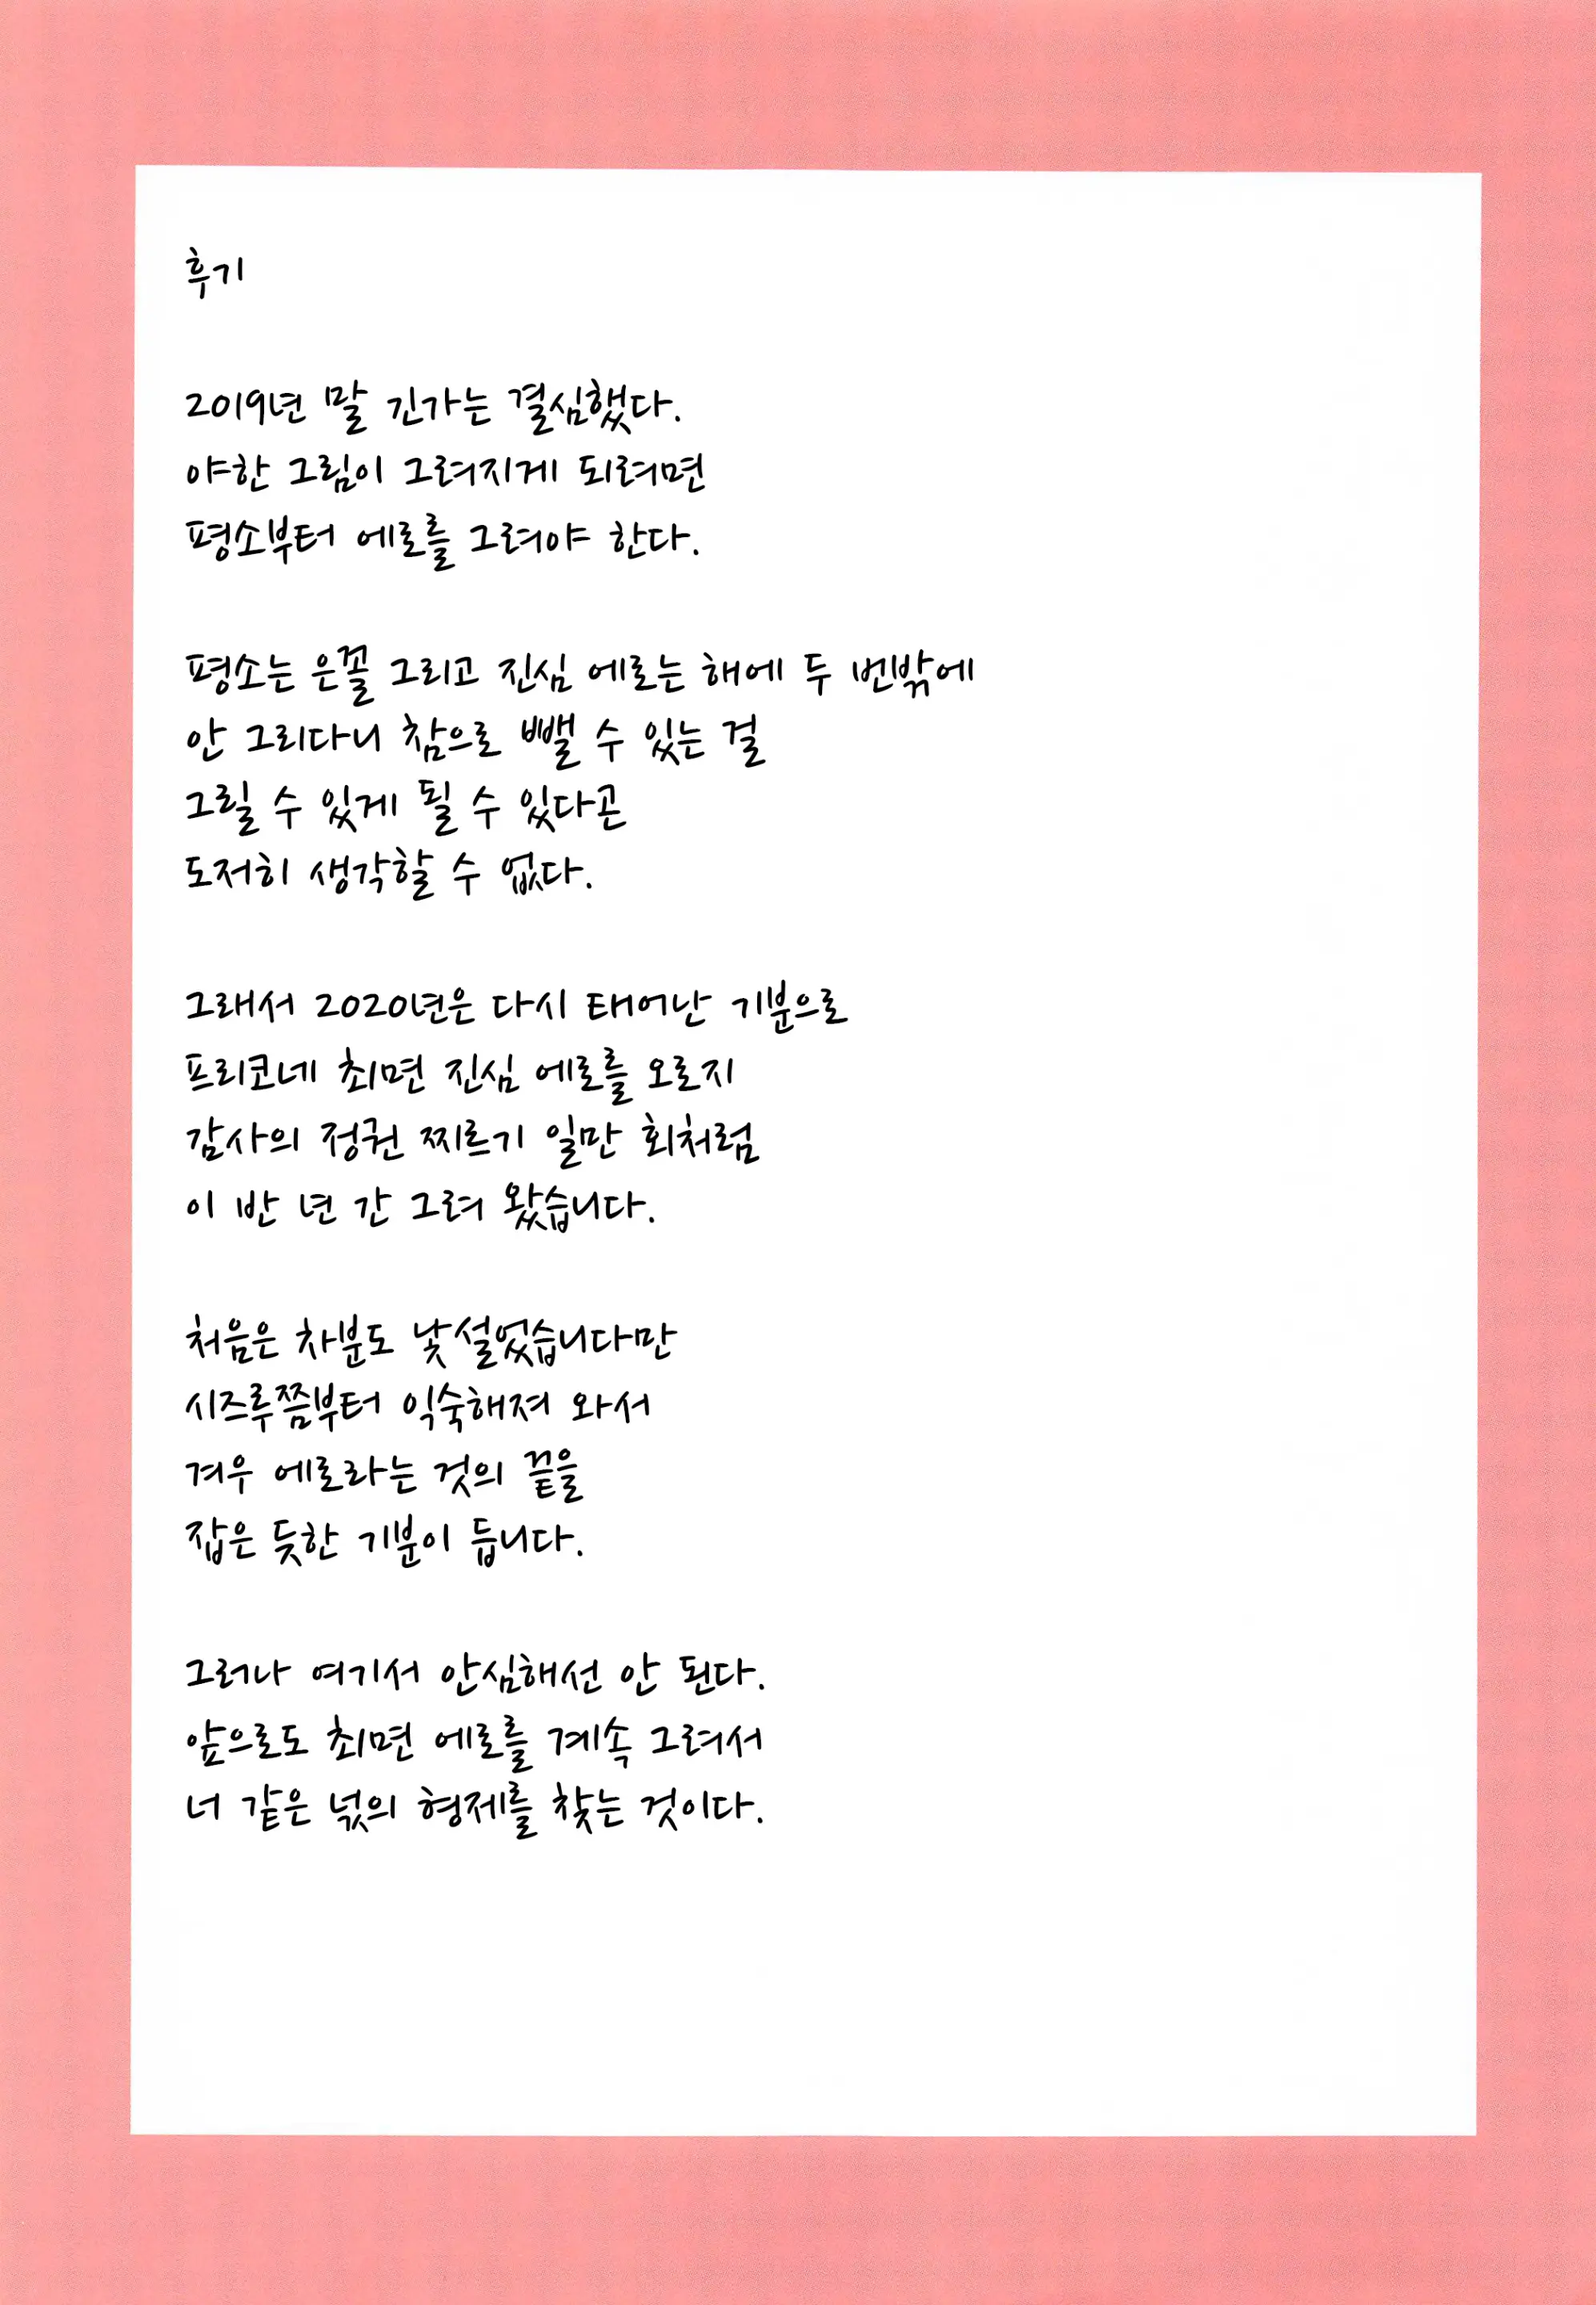 후기
2019년 말 긴가는 결심했다.
야한 그림이 그려지게 되려면
평소부터 에로를 그려야 한다.
평소는 은꼴 그리고 진심 에로는 해에 두 번밖에
안 그리다니 참으로 뺄 수 있는 걸
그릴 수 있게 될 수 있다곤
도저히 생각할 수 없다.
그래서 2020년은 다시 태어난 기분으로
프리코네 최면 진심 에로를 오로지
감사의 정권 찌르기 일만 회처럼
이 반 년 간 그려 왔습니다.
처음은 차분도 낯설었습니다만
시즈루쯤부터 익숙해져 와서
겨우 에로라는 것의 끝을
잡은 듯한 기분이 듭니다.
그러나 여기서 안심해선 안 된다.
앞으로도 최면 에로를 계속 그려서
너 같은 넋의 형제를 찾는 것이다.